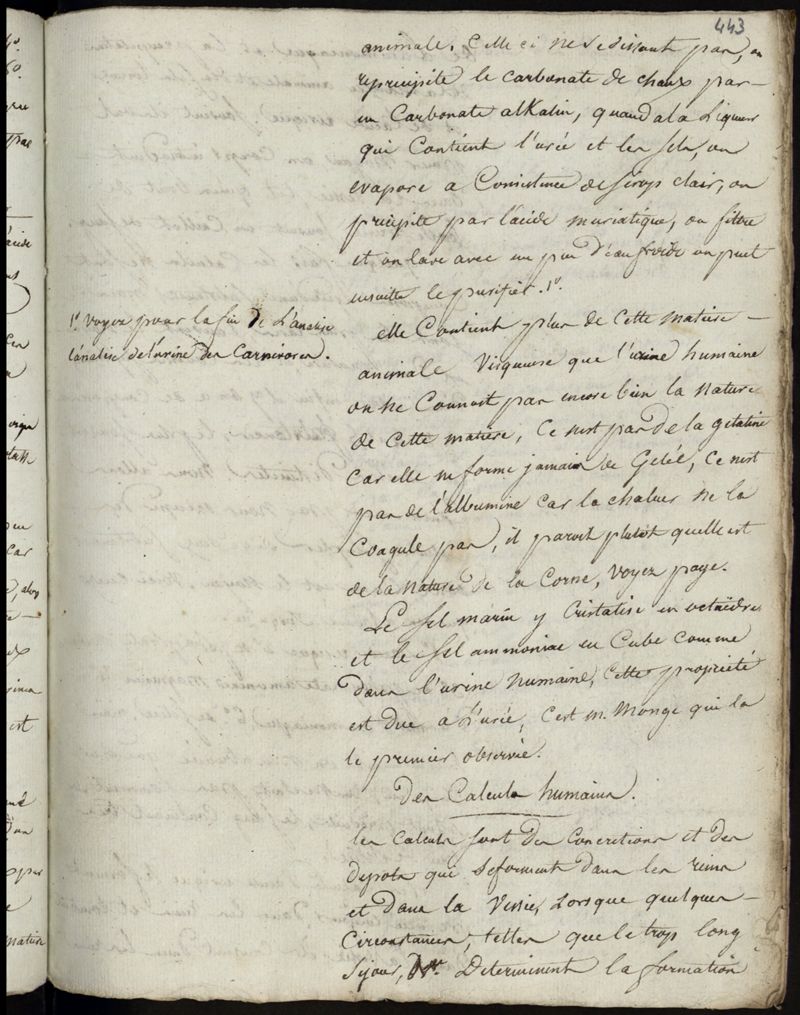 443
animale. Celle ci ne se dissout pas, on
reprécipite le carbonate de chaux par
un Carbonate alkalin, quand a la Liqueur
qui Contient l'urée et les sels, on
evapore a Consistence de sirop clair, on
précipite par l'acide muriatique, on filtre
et on lave avec un peu d'eau froide on peut
ensuite le purifier. 1°.
1° voyez pour la fin de L'analise
l'analise de l'urine des Carnivores.
elle Contient plus de Cette matiere
animale Visqueuse que l'urine humaine
on ne Connoit pas encore bien la nature
de Cette matiere, Ce n'est pas de la gelatine
car elle ne forme jamais de Gelée, Ce n'est
pas de l'albumine car la chaleur ne la
Coagule pas, il paroit plutôt quelle est
de la nature de la Corne, voyez page.
Le sel marin y Cristalise en octaëdre
et le sel ammoniac en Cube comme
dans l'urine humaine, Cette propriété
est due a L'urée, C'est m. Monge qui la
le premier observée.
Des Calculs humains.
les Calculs sont des Concretions et des
depots que se forment dans les reins
et dans la Vessie, Lorsque quelques
Circonstances, telles que le trop long
Sejour, Determinent la formation